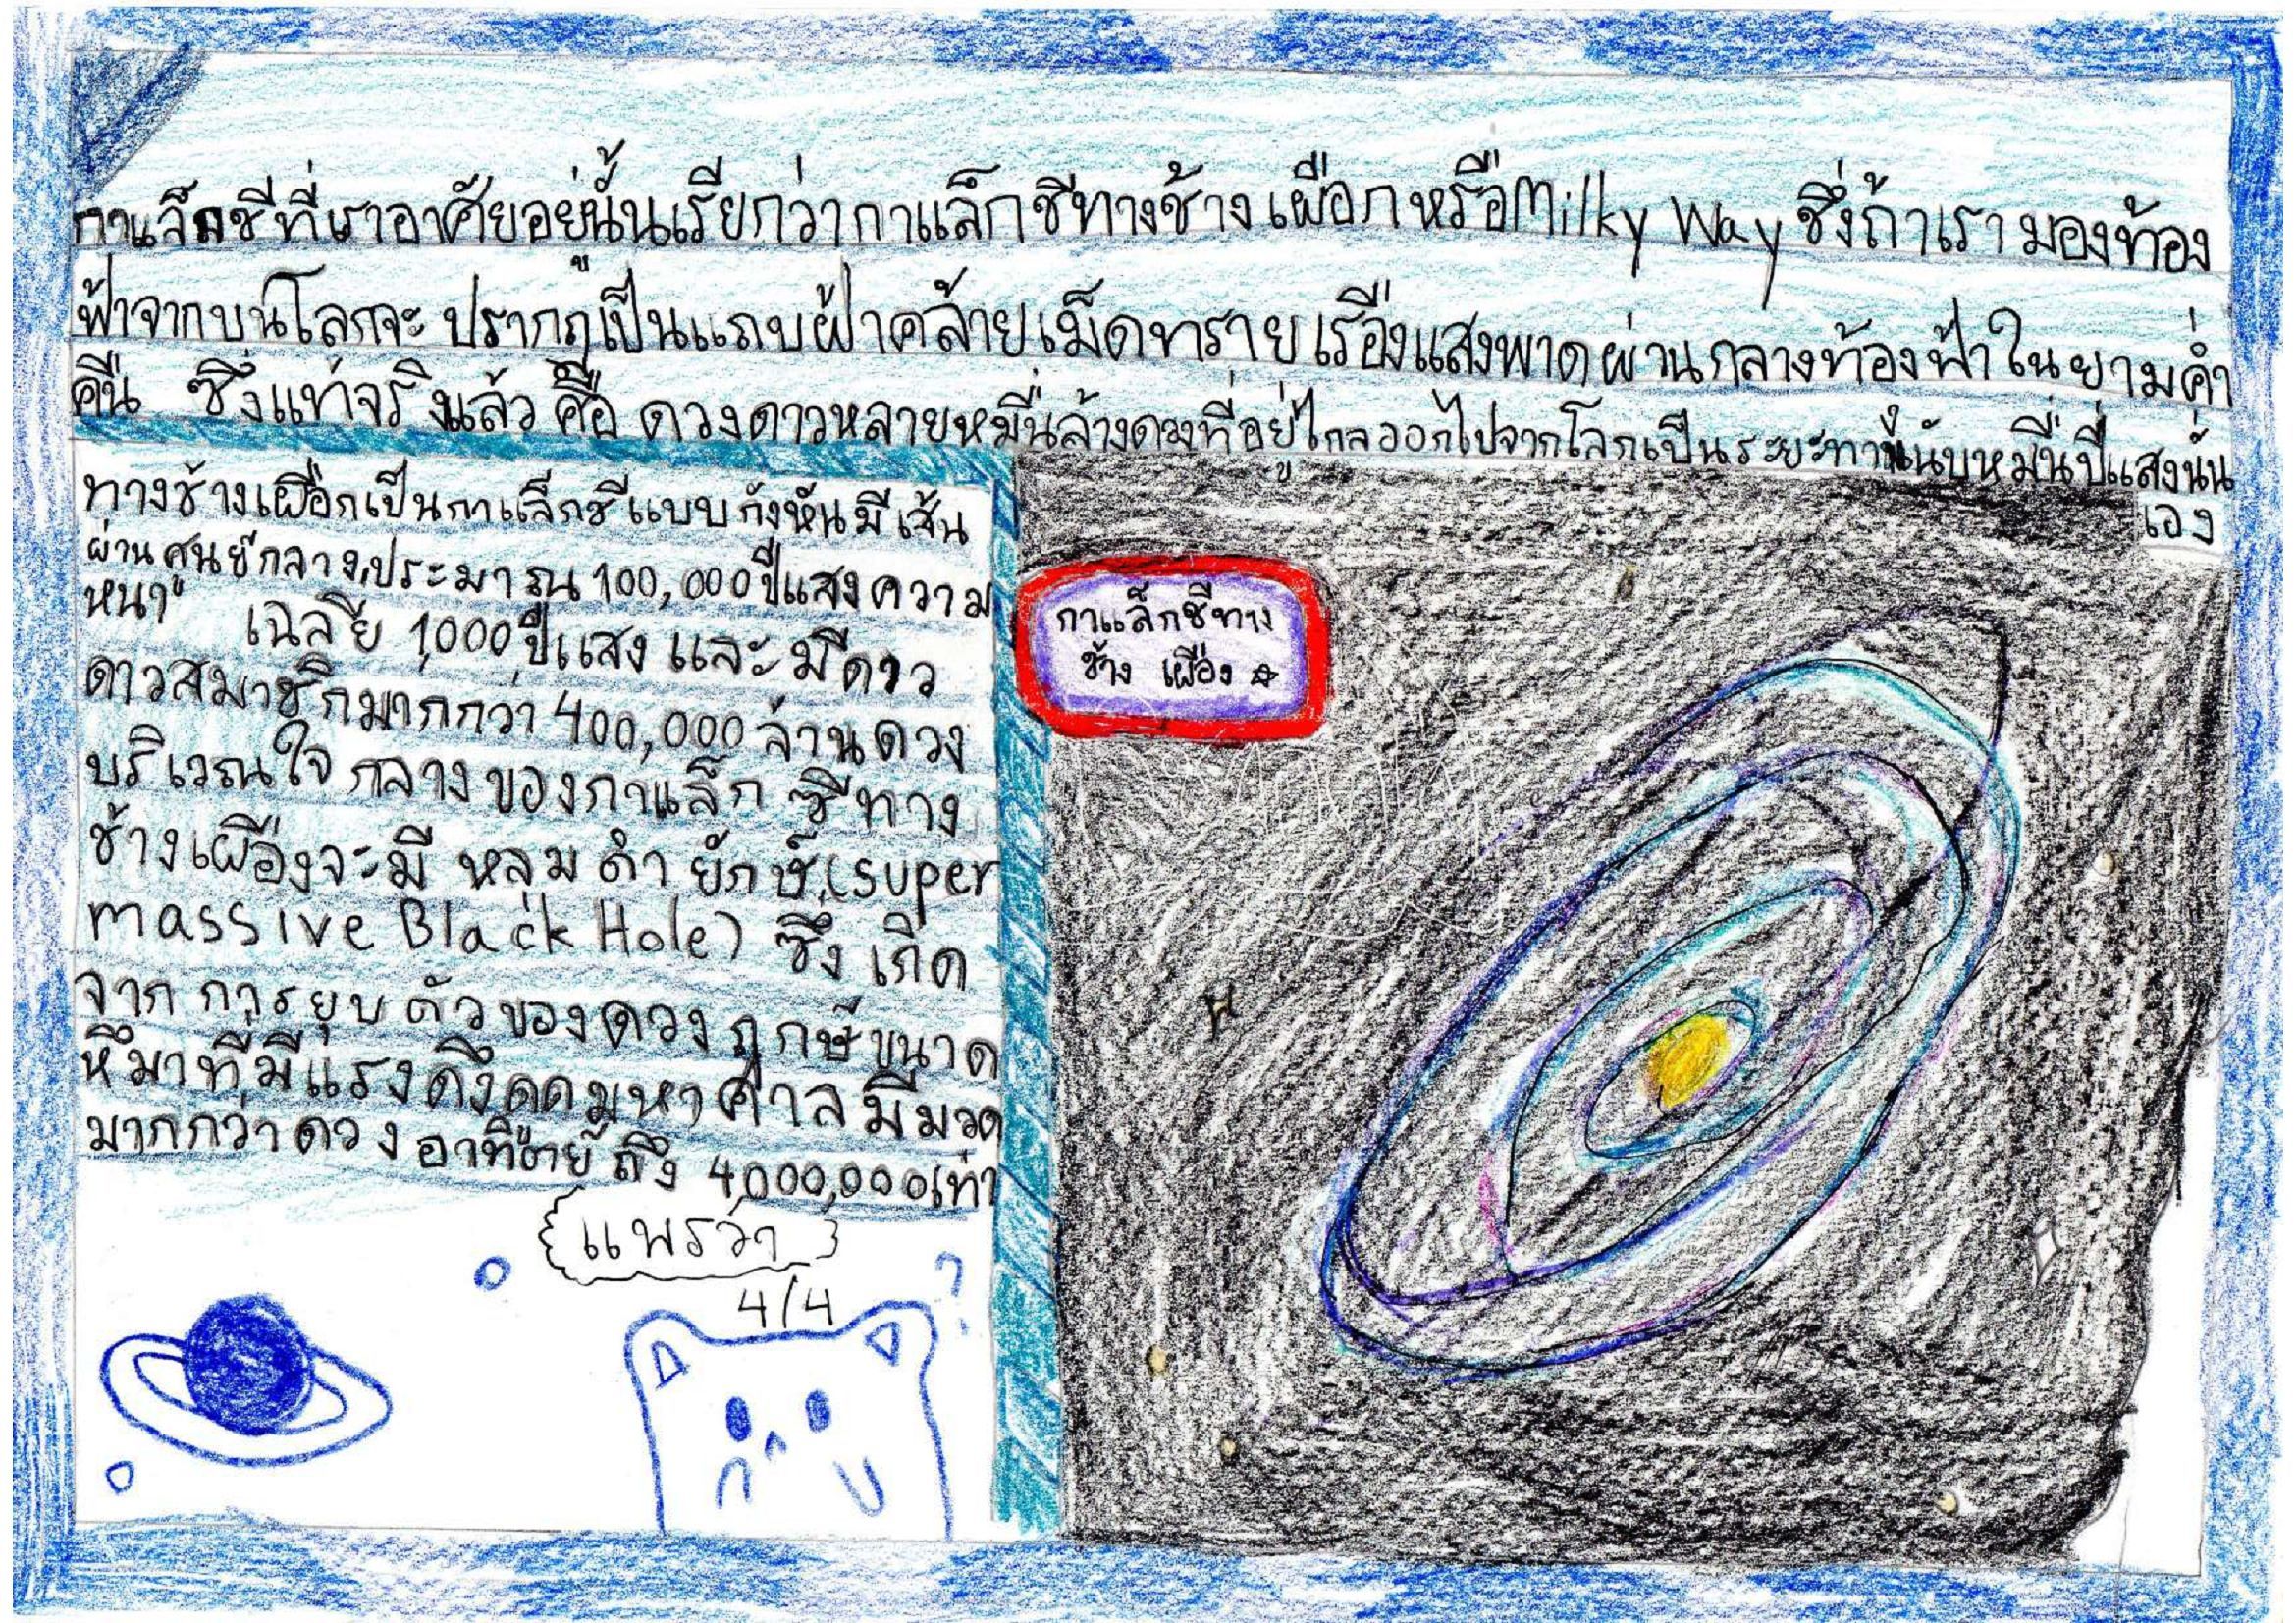 กาแล็กซีที่เราอาศัยอยู่นั้นเรียกว่ากาแล็กซีทางช้างเผือกหรือMilky Way ซึ่งถ้าเรามองท้อง
ฟ้าจากบนโลกจะ ปรากฏเป็นแถบฝ้าคล้ายเม็ดทรายเรืองแสงพาดผ่านกลางท้องฟ้าในยามค่ำ
คืน ซึ่งแท้จริงแล้ว คือ ดวงดาวหลายหมื่นล้างดวงที่อยู่ไกลออกไปจากโลกเป็นระยะทางนับหมื่นปีแสงนั่น
เอง
ทางช้างเผือกเป็นกาแล็กซีแบบกังหันมีเส้น
ผ่านศูนย์กลางประมาณ 100,000 ปีแสง ความ
หนา เฉลี่ย 1,000 ปีแสง และมีดาว
ดาวสมาชิกมากกว่า 400,000 ล้านดวง
บริเวณใจกลางของกาแล็กซีทาง
ช้างเผือง จะมี หลุมดำ ยักษ์ (super
massive Black Hole) ซึ่งเกิด
จากการยุบตัวของดวงฤกษ์ขนาด
หึมาที่มีแรงดึงดูดมหาศาล มีมวล
มากกว่าดวงอาทิตย์ ถึง 4,000,000เท่า
แพรวา
4/4
กาแล็กซีทาง
ช้าง เผือง